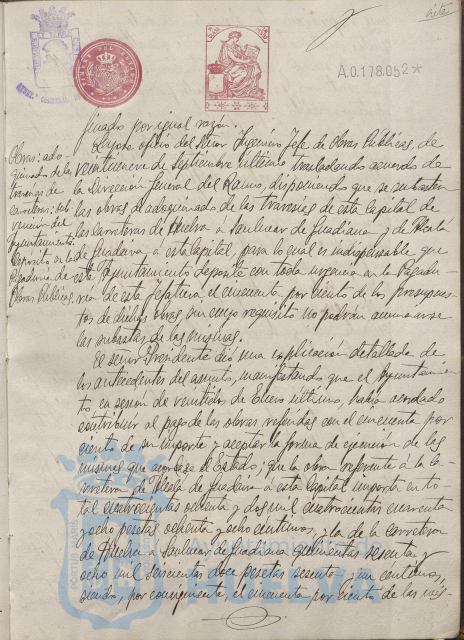 siete
A.0.178.052*
ficado por igual razón.
Leyose oficio del Señor Ingeniero Jefe de Obras Públicas, de
veintinueve de Septiembre último trasladando acuerdo de
la Dirección General del Ramo, disponiendo que se subasten
las obras de adoquinado de las travesías de esta Capital de
las carreteras de Huelva a Sanlucar de Guadiana y de Alcalá
de Guadaira á esta Capital, para lo cual es indispensable que
este Ayuntamiento deposite con toda urgencia en la Pagadu-
ría de esta Jefatura, el cincuenta por ciento de los presupues-
tos de dichas obras, sin cuyo requisito no podrán anunciarse
las subastas de las mismas.
Obras: ado-
quinado de las
travesías de
carreteras: sub
vención del
Ayuntamiento:
Depósito en la
Pagaduría de
Obras Públicas.
El señor Presidente dió una explicación detallada de
los antecedentes del asunto, manifestando que el Ayuntamien-
to, en sesión de veintidos de Enero último, había acordado
contribuir al pago de las obras referidas con el cincuenta por
ciento de su importe y aceptar la forma de ejecución de las
mismas que acordase el Estado; que la obra referente á la ca-
rretera de Alcalá de Guadaira á esta Capital importa en to-
tal cuatrocientas ochenta y dos mil cuatrocientas cuarenta
y ocho pesetas ochenta y ocho céntimos, y la de la carretera
de Huelva a Sanlucar de Guadiana quinientas sesenta y
ocho mil seiscientas doce pesetas sesenta y un céntimos,
siendo, por consiguiente, el cincuenta por ciento de las mis-
Ayuntamiento de
HUELVA